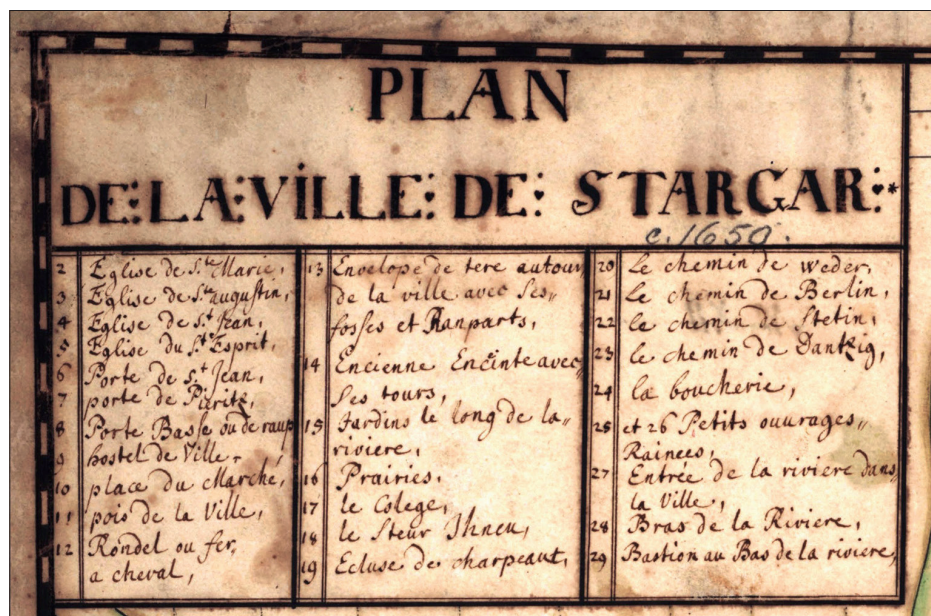 PLAN
DE: LA: VILLE: DE: STARGAR:
c. 1650.
2 Eglise de S.te Marie,
3 Eglise de S.t augustin,
4 Eglise de S.t Jean,
5 Eglise du S.t Esprit,
6 Porte de S.t Jean,
7 porte de Piritz,
8 Porte Basse ou de raup
9 hostel de Ville,
10 place du Marché,
11 pois de la Ville,
12 Rondel ou fer,
a cheval,
13 Envelope de tere autour
de la ville avec Ses,,
fosses et Ranparts,
14 Encienne Encinte avec
Ses tours,
15 Jardins le long de la,,
riviere,
16 Prairies,
17 le Colege,
18 le Steur Ihneu,
19 Ecluse de charpeaut,
20 Le chemin de weder,
21 Le chemin de Berlin,
22 le chemin de Stetin,
23 le chemin de Dantzig,
24 la boucherie,
25 et 26 Petits ouurages,,
Rainees,
27 Entrée de la riviere dans
la Ville,
28 Bras de la Riviere,
29 Bastion au Bas de la riviere,